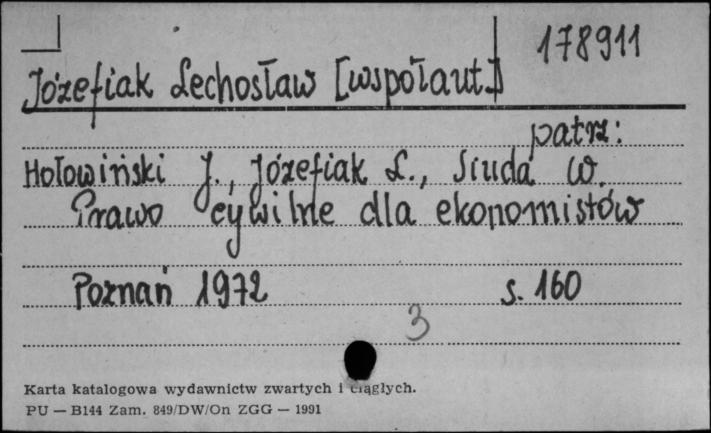 178911
Józefiak Lechosław [współaut.]
patrz:
Hołowiński J., Józefiak L., Siuda W.
Prawo cywilne dla ekonomistów
Poznań 1972 s. 160
3
Karta katalogowa wydawnictw zwartych i ciągłych.
PU — B144 Zam. 849/DW/On ZGG — 1991